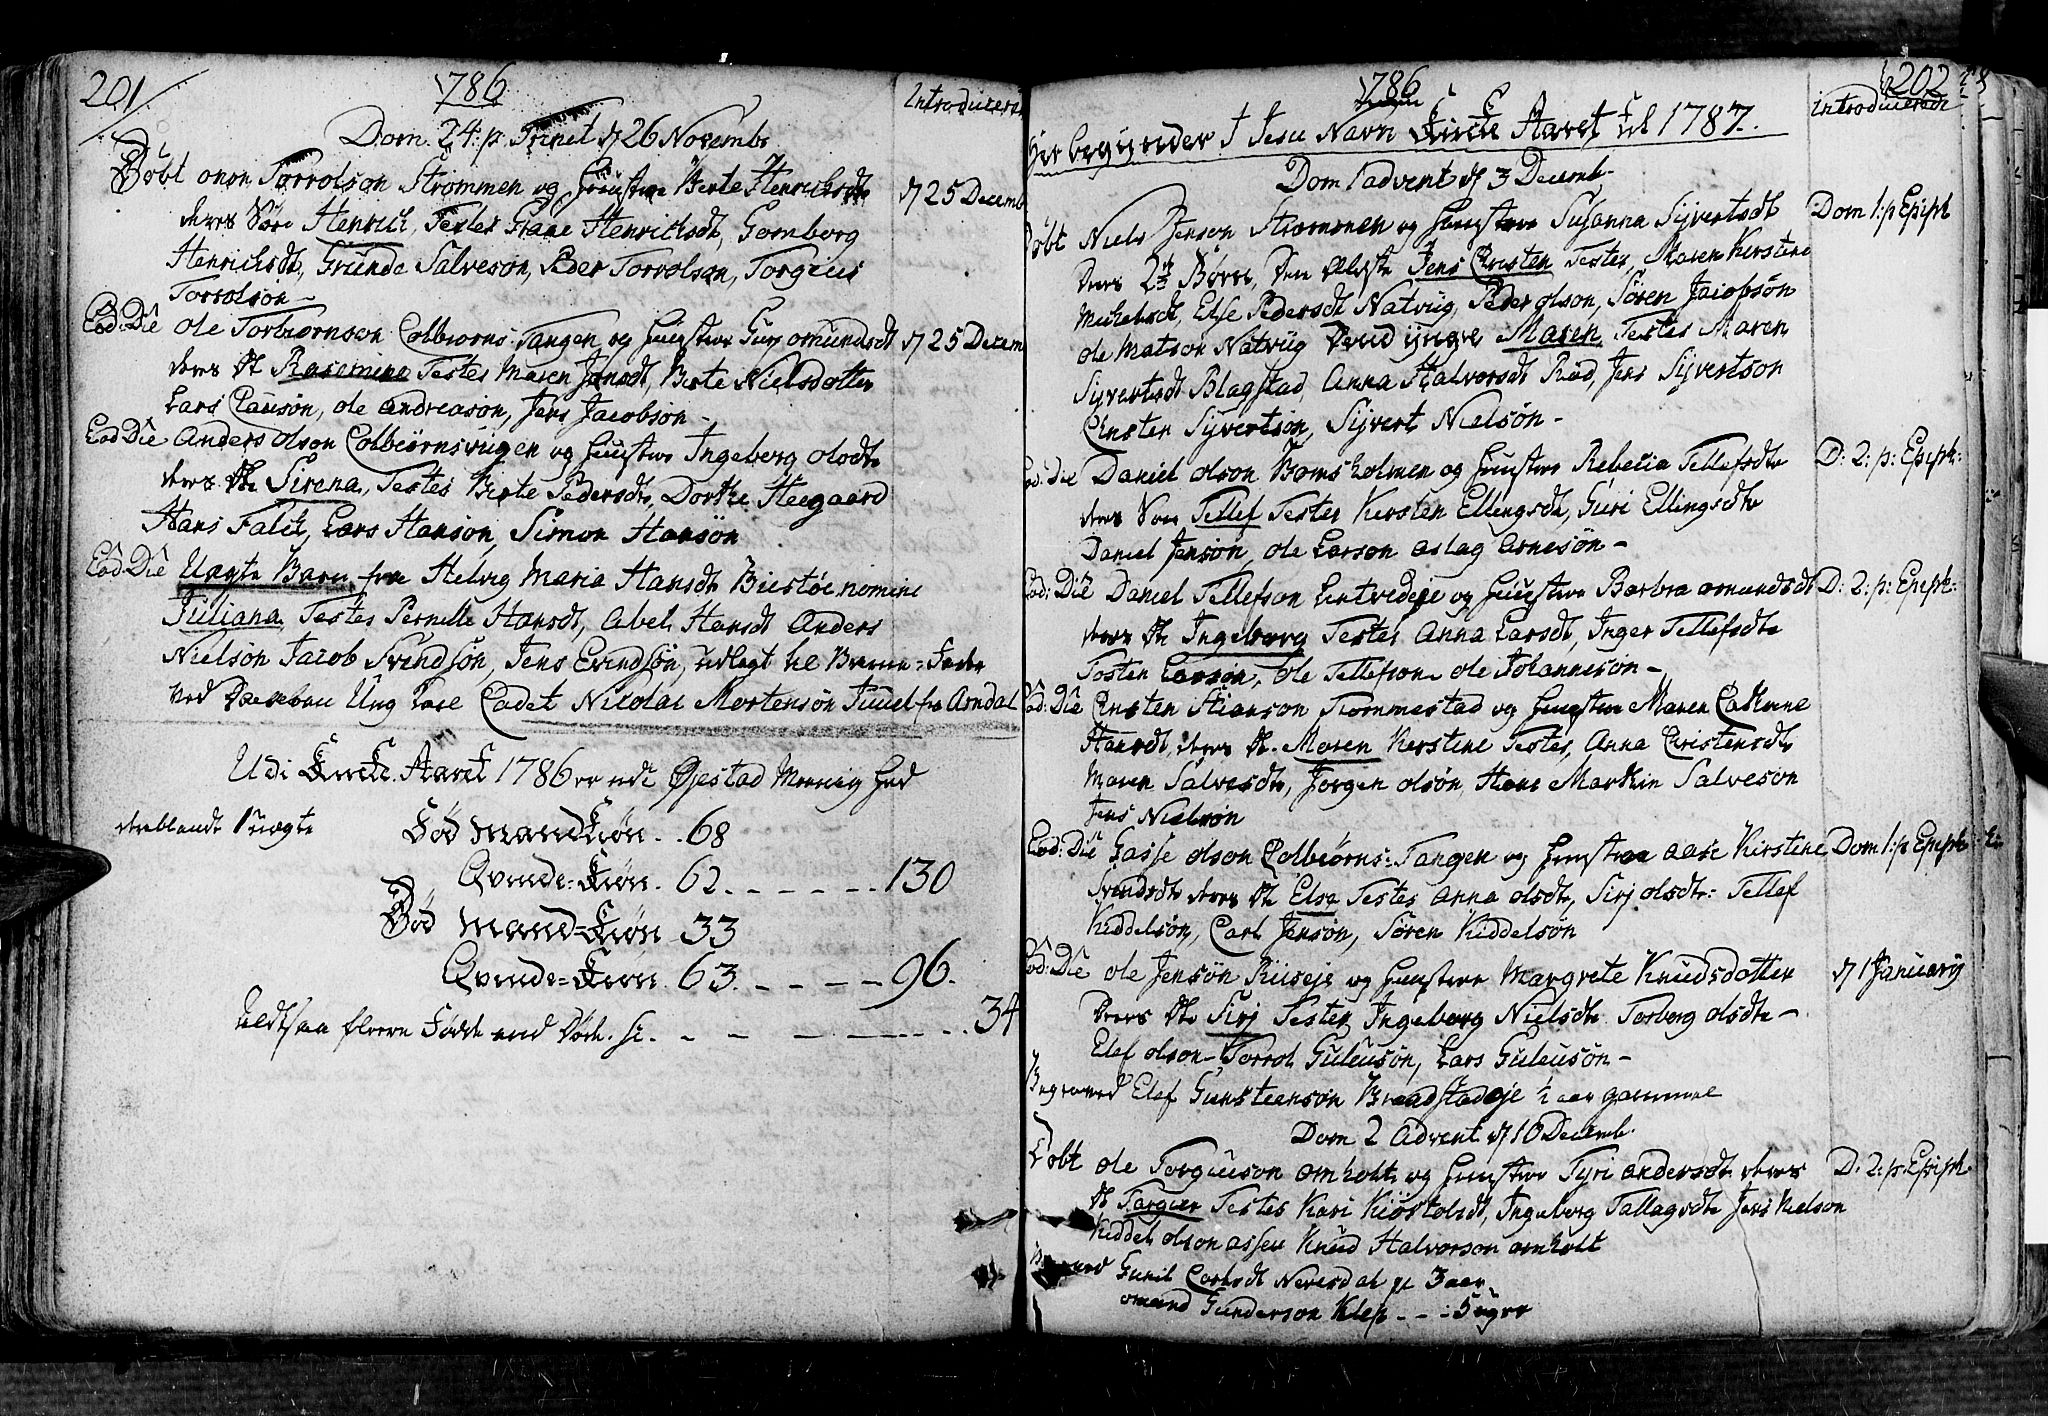 201
1786
Introducered
Dom. 24: p. Trinet d 26 Novembr
Döbt Onon Torrolson Strømmen og Hustrue Berte Henrichsdt
d 25 Decemb
deres Søn Henrich, Testes Graae Henrichsdt, Gomborg
Henrichsdt, Grunde Salveson, Peder Torrolson, Torgius
Torrolsön
Eod: Die Ole Torbiørnson Colbiorns: Tangen og Hustrue Gurj omundsdt
d 25 Decem
deres dt Rasemine Testes Maren Jensdt, Berte Nielsdotter
Lars Clausøn, Ole andreasøn, Jens Jacobsøn
Eod: Die Anders olson Colbiørnsviigen og Hustrue Ingeborg olsdt
deres dtr Sirena, Testes Berte Pedersdt, Dorthe Heegaard
Hans Falch, Lars Hanson, Simon Hansön
Eod: Die Uægte Barn fra Helvig Maria Hansdt Buestøe nomine
Juliana, Testes Pernille Hansdt, Abel Hansdt Anders
Nielson Jacob Svendsön, Jens Evindsön, udlagt til Barne=Fader
ved Daaben Ung Karl Cadet Nicolai Mortensön Juuel fra Arndal
Udi Kirke Aaret 1786 er udi Øjestad Meenig hed
deriblandt 1 uægte
Fød Mandkiön . . 68
Qvinde=Kiön. 62. - - - - - - 130
Død Mand=Kiön 33
Qvinde=Kiön. 63. - - - - 96.
Altsaa fleere Födde end Döde. - - - - - - 34
1786
202
Introducered
Her begynder I Jesu Navn Kirke Aaret til 1787.
Dom 1 advent d 3 Decemb.
Döbt Niels Jenson Strømmen og Hustrue Susanna Sijvertsdt
Dom 1: p Epiph
deres 2de Børn, den Ældste Jens Christen Testes, Maren Kirstine
Michelsdt, Else Pedersdt Natvig, Peder olson, Sören Jacobsön
Ole Matson Natvig Dend yngre Maren Testes Maren
Sijvertsdt Blagstad, Anna Halvorsdt Rud, Jens Sijvertson
Christen Sijvertsön, Sijvert Nielsön
Eod: Die Daniel olson Bomsholmen og Hustrue Rebecca Tellefsdtr
D: 2: p: Epiph:
deres Søn Tellef Testes Kirsten Ellingsdt, Guri Ellingsdtr
Daniel Jensön, Ole Larson aslag Arnesön
Eod: Die Daniel Tellefson Lintvedeje og Hustrue Barbra omundsdt
D: 2: p: Epiph:
deres dtr Ingeborg Testes Anna Larsdt, Inger Tellefsdtr
Tosten Larsön, Ole Tellefson Ole Johannesön
Eod: Die Christen Stianson Trommestad og Hustrue Maren Catherine
Hansdt, deres dt. Maren Kirstine Testes, Anna Christensdt,
Maren Salvesdt, Jørgen olsön, Hans Marthin Salveson
Jens Nielsön
Eod: Die Gasse olson Colbiørns: Tangen og Hustrue aase Kirstine
Dom 1: p Epiph
Svendsdt deres dt Else Testes Anna olsdt, Sirj olsdt: Tellef
Kiddelsön, Carl Jensön, Sören Kiddelsön
Eod: Die Ole Jensön Riiseje og Hustrue Margrete Knudsdotter
d 1 Januarij
Deres dtr Sirj Testes Ingeborg Nielsdt Torborg olsdtr
Elef olson Torrol Guleusön, Lars Guleusön
Begraved Elef Gunsteensön Braadstadeje ½ aar gammel
Dom 2 Advent d 10 Decemb.
Döbt Ole Torgiuson omholt og Hustrue Tyri andersdt deres
D: 2: p: Epiph
dt Targier Testes Kari Kiøstolsdt, Ingeborg Tallagsdt Jens Nielson
Kiddel olson assen Knud Halvorson omholt
Gunil Carlsdt Neersdal 3 aar
Omund Gunderson Klep - - 5 uger